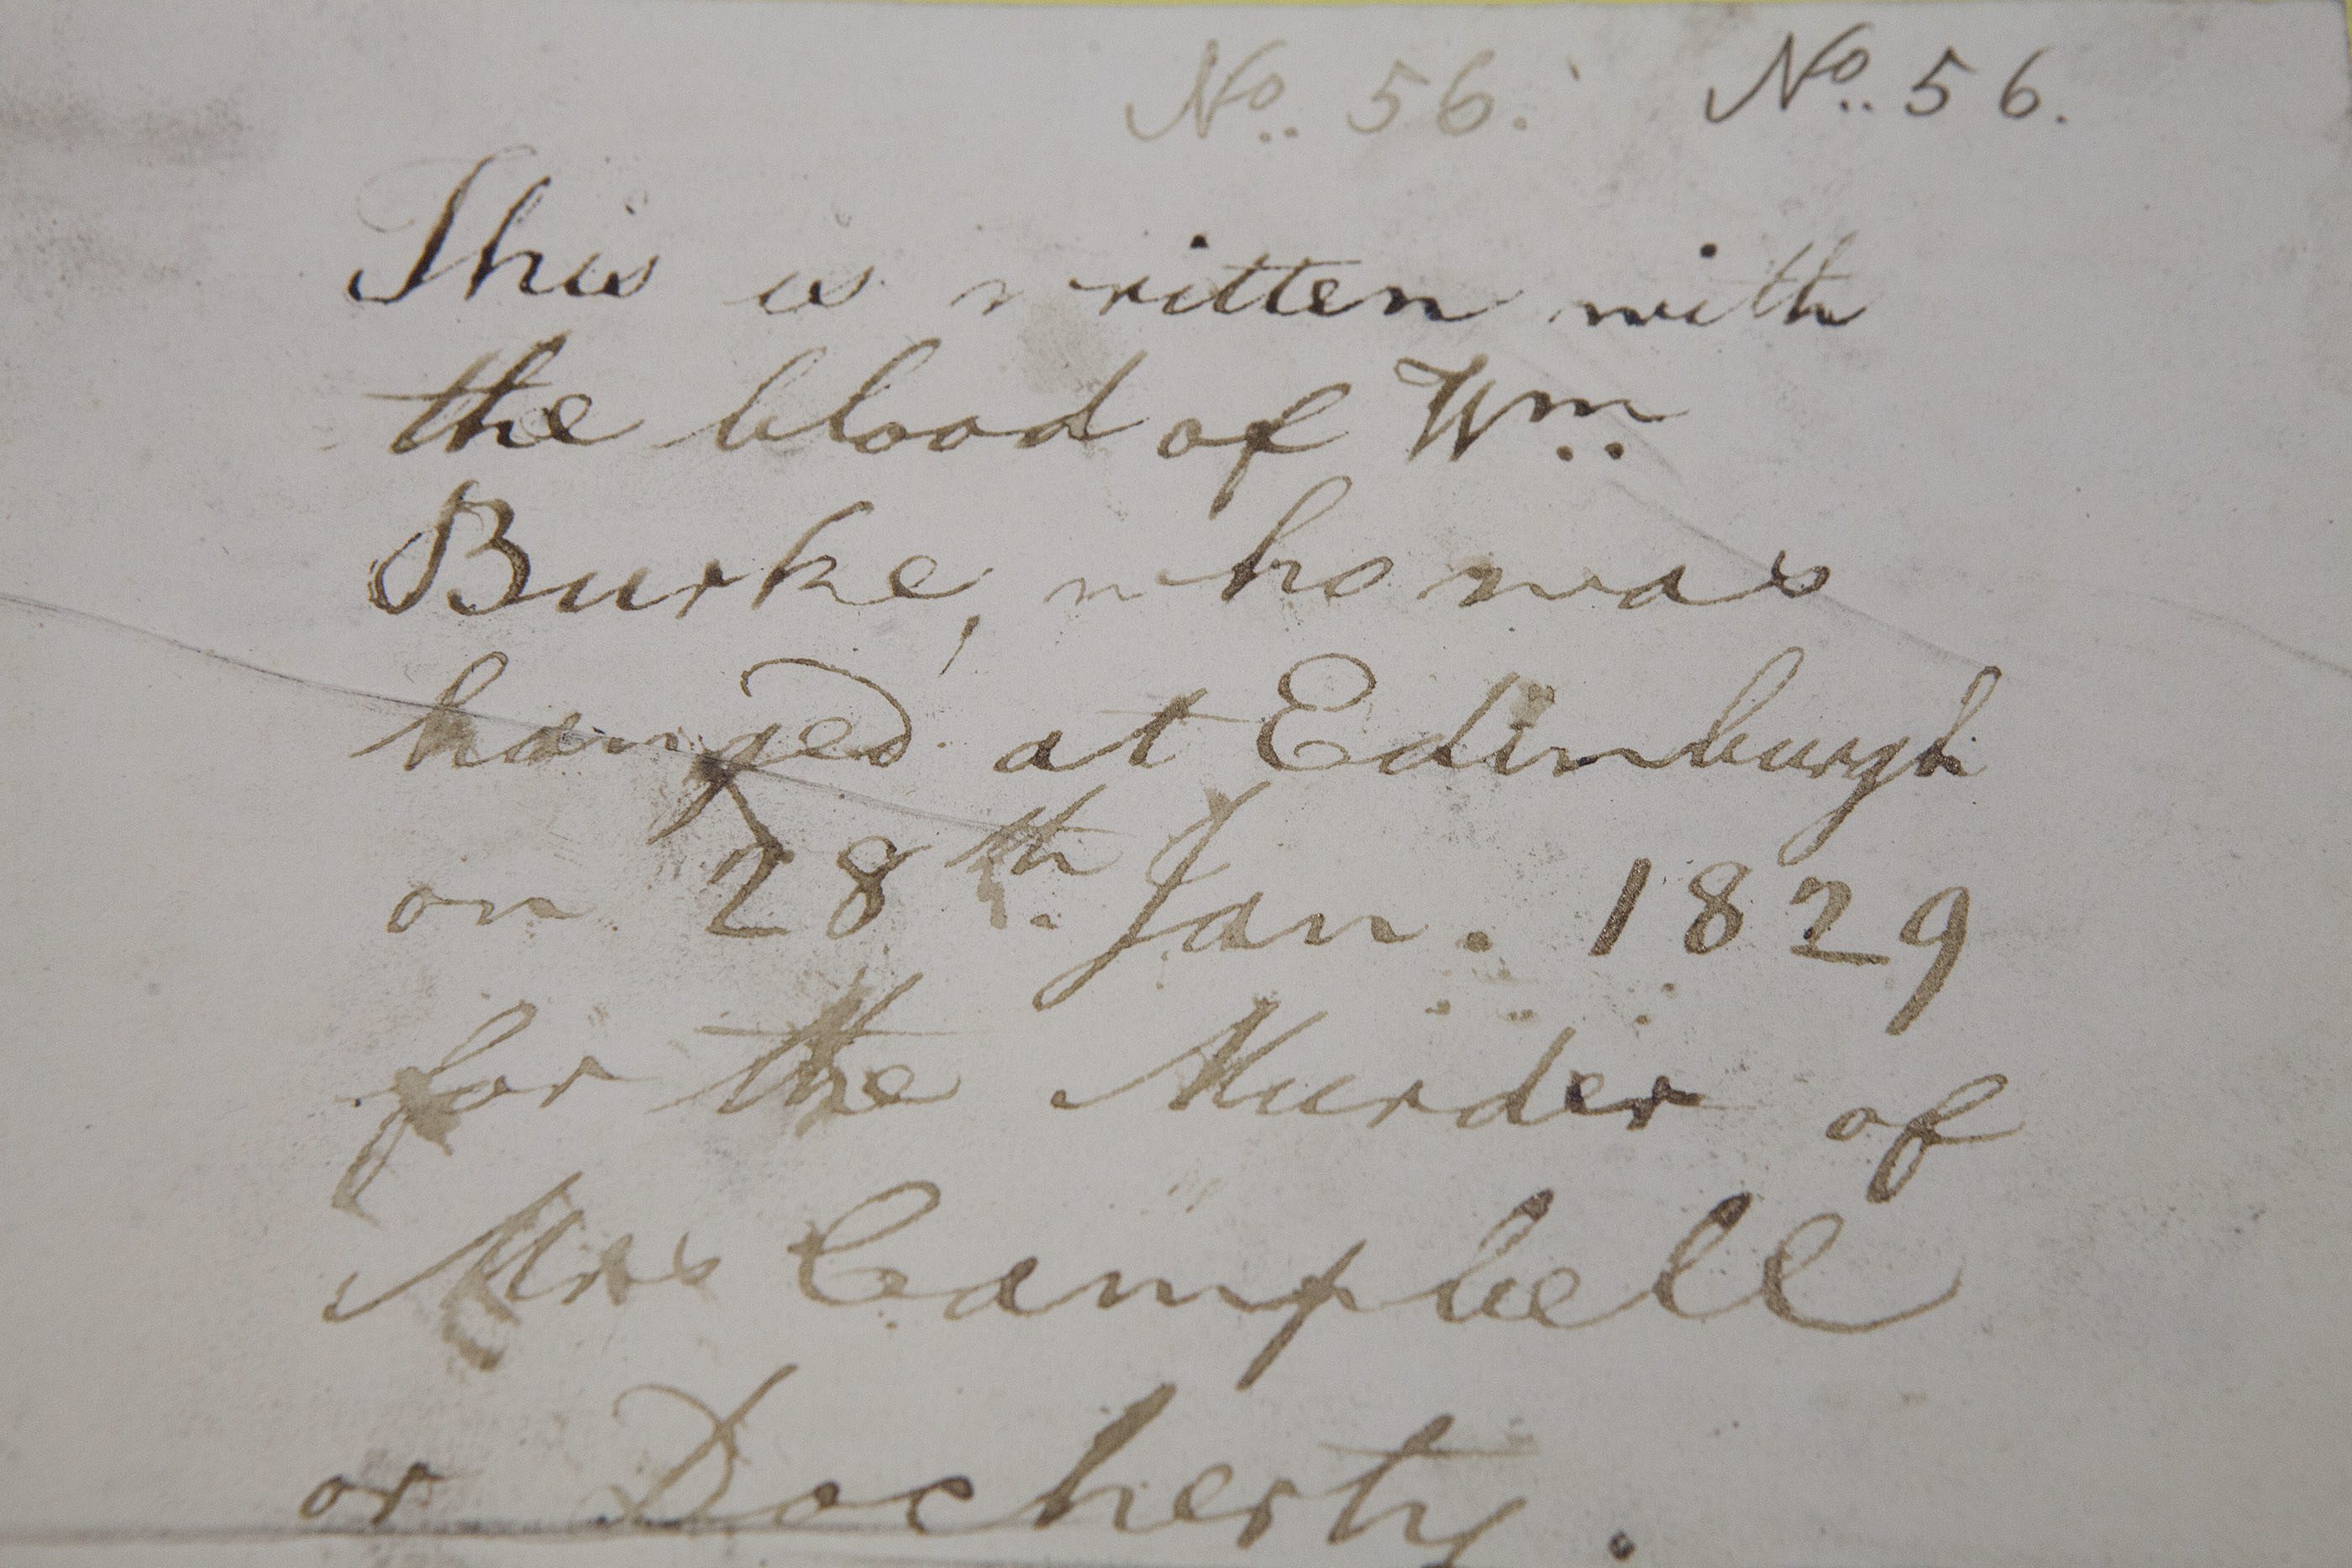 No. 56. No. 56.
This is written with
the blood of Wm.
Burke, who was
hanged at Edinburgh
on 28th. Jan. 1829
for the Murder of
Mrs Campbell
or Docherty.